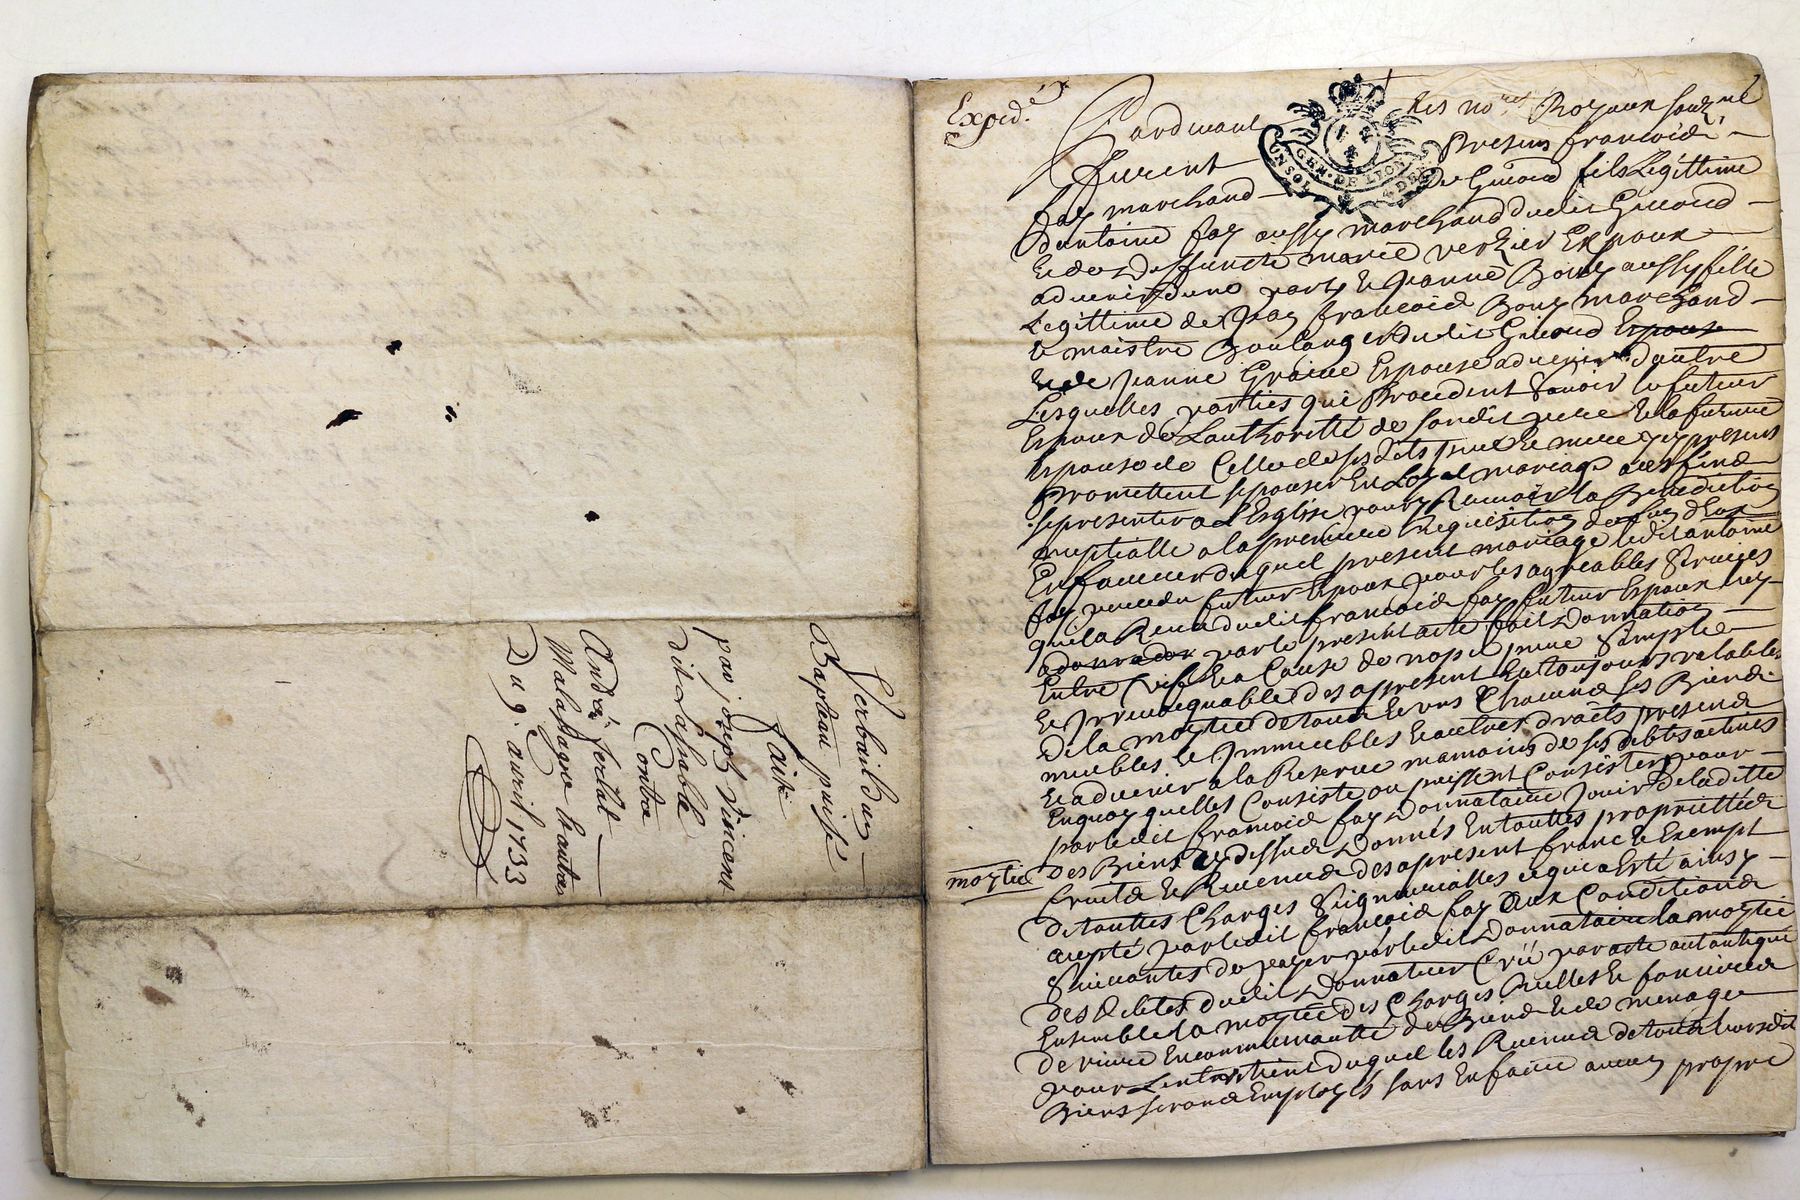 Verbail du
Bapteau puisé
faite
par joseph Vincent
dit Lafable
Contre
André ferlat
Malassagne hautas
Du 9. avril 1733
Exped.é
Pardevant les no.res Royaux soubz.né
furent presens francois
fay marchand de Giraud fils Legittime
dantoine fay aussy marchand dudit Giraud
et de deffuncte marie verzier Expoux
advenir dune part et Jeanne Bouy aussy fille
Legittime de francois Bouy marchand
et maistre Boulanger dudit Giraud
et de jeanne Graive Espouse advenir dautre
Lesquelles parties qui procedent scavoir le futeur
Espoux de Lauthoritté de sondit pere et la future
Espouse de Celle de sesdits pere et mere icy presens
promettent sepouser en Loyal mariage a ces fins
se presenter a L'Esglise pour y Recevoir la Benediction
nuptialle a la premiere Requisition de lun d'Eux
En faveur duquel present mariage ledit antoine
fay pere du futeur Espoux pour les agreables services
quil a Receu dudit francois fay futeur Espoux icy
par le present acte fait donnation
Entre vifs a Cause de nopce pure simple
et irrevocquable des apresent et a toujours valable
de la moytié de tous et uns Chacuns ses Biens
meubles et immeubles et autres droits presens
et advenir a la Reserve de ses debtes actives
En quoy quelles Consiste ou puissent Consister pour
par ledit francois fay donnataire jouir de laditte
moytié
des Biens cy dessus donnés En touttes proprietté
fruits et Revenus des apresent franc et Exempt
de touttes Charges seigneurialles ce qui a Esté ainsy
accepté par ledit francois fay aux Conditions
suivantes de payer par ledit donnataire la moytié
des debtes dudit donnateur Créé par acte autantique
Ensemble la moytié des Charges
de vivre En communauté de Biens et de menage
pour Lentretient duquel les Revenus de tous leursdits
Biens seront Employés sans En faire aucun propre
GEN. DE LEON
UN SOL